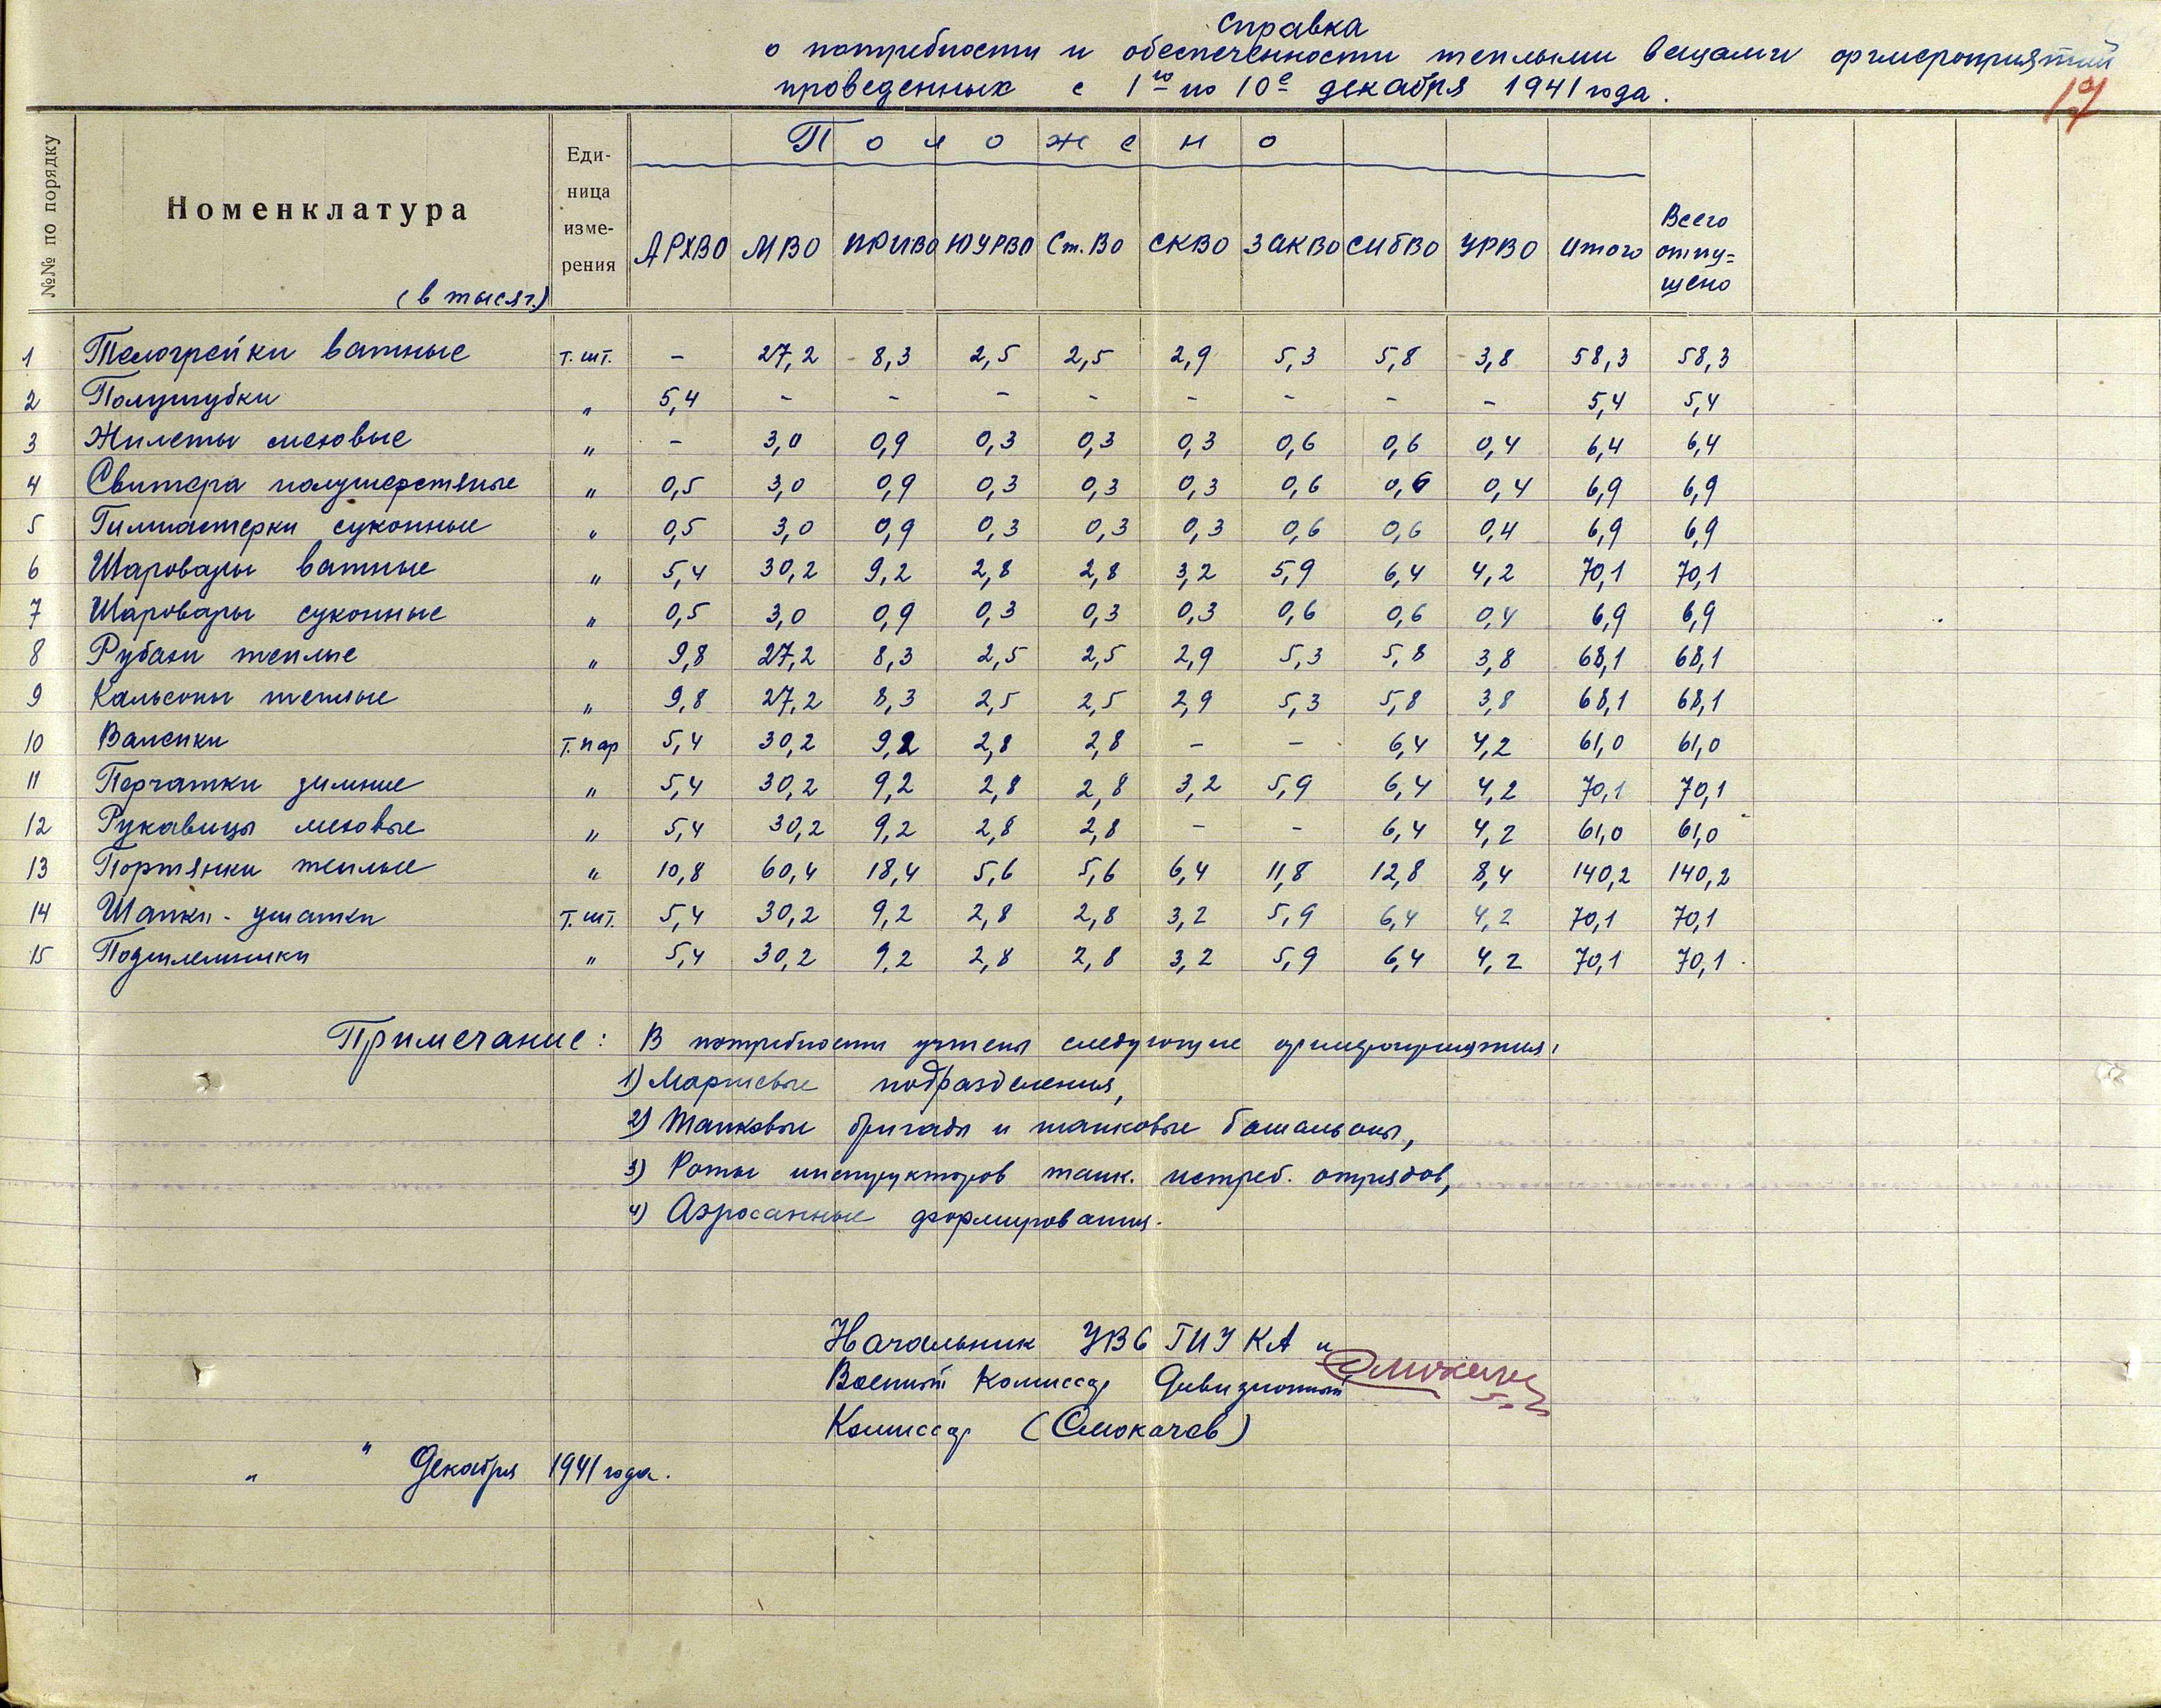 Справка
о потребности и обеспеченности теплыми вещами оргмероприятий
проведенных с 1го по 10е декабря 1941 года.
17
№№ по порядку
Номенклатура
(в тысяч.)
Еди-
ница
изме-
рения
Положено
АРХВО МВО ПРИВО ЮУРВО Ст.ВО СКВО ЗАКВО СИБВО УРВО Итого
Всего
отпу=
щено
1 Телогрейки ватные т.шт. - 27,2 8,3 2,5 2,5 2,9 5,3 5,8 3,8 58,3 58,3
2 Полушубки " 5,4 - - - - - - - - 5,4 5,4
3 Жилеты меховые " - 3,0 0,9 0,3 0,3 0,3 0,6 0,6 0,4 6,4 6,4
4 Свитера полушерстяные " 0,5 3,0 0,9 0,3 0,3 0,3 0,6 0,6 0,4 6,9 6,9
5 Гимнастерки суконные " 0,5 3,0 0,9 0,3 0,3 0,3 0,6 0,6 0,4 6,9 6,9
6 Шаровары ватные " 5,4 30,2 9,2 2,8 2,8 3,2 5,9 6,4 4,2 70,1 70,1
7 Шаровары суконные " 0,5 3,0 0,9 0,3 0,3 0,3 0,6 0,6 0,4 6,9 6,9
8 Рубахи теплые " 9,8 27,2 8,3 2,5 2,5 2,9 5,3 5,8 3,8 68,1 68,1
9 Кальсоны теплые " 9,8 27,2 8,3 2,5 2,5 2,9 5,3 5,8 3,8 68,1 68,1
10 Валенки т.пар 5,4 30,2 9,2 2,8 2,8 - - 6,4 4,2 61,0 61,0
11 Перчатки зимние " 5,4 30,2 9,2 2,8 2,8 3,2 5,9 6,4 4,2 70,1 70,1
12 Рукавицы меховые " 5,4 30,2 9,2 2,8 2,8 - - 6,4 4,2 61,0 61,0
13 Портянки теплые " 10,8 60,4 18,4 5,6 5,6 6,4 11,8 12,8 8,4 140,2 140,2
14 Шапки-ушанки т.шт. 5,4 30,2 9,2 2,8 2,8 3,2 5,9 6,4 4,2 70,1 70,1
15 Подшлемники " 5,4 30,2 9,2 2,8 2,8 3,2 5,9 6,4 4,2 70,1 70,1
Примечание: В потребности учтены следующие оргмероприятия:
1) Маршевые подразделения,
2) Танковые бригады и танковые батальоны,
3) Роты инструкторов танк. истреб. отрядов,
4) Аэросанные формирования.
Начальник УВС ГИУ КА и
Военный Комиссар Дивизионный
Комиссар (Смокачев)
" " Декабря 1941 года.